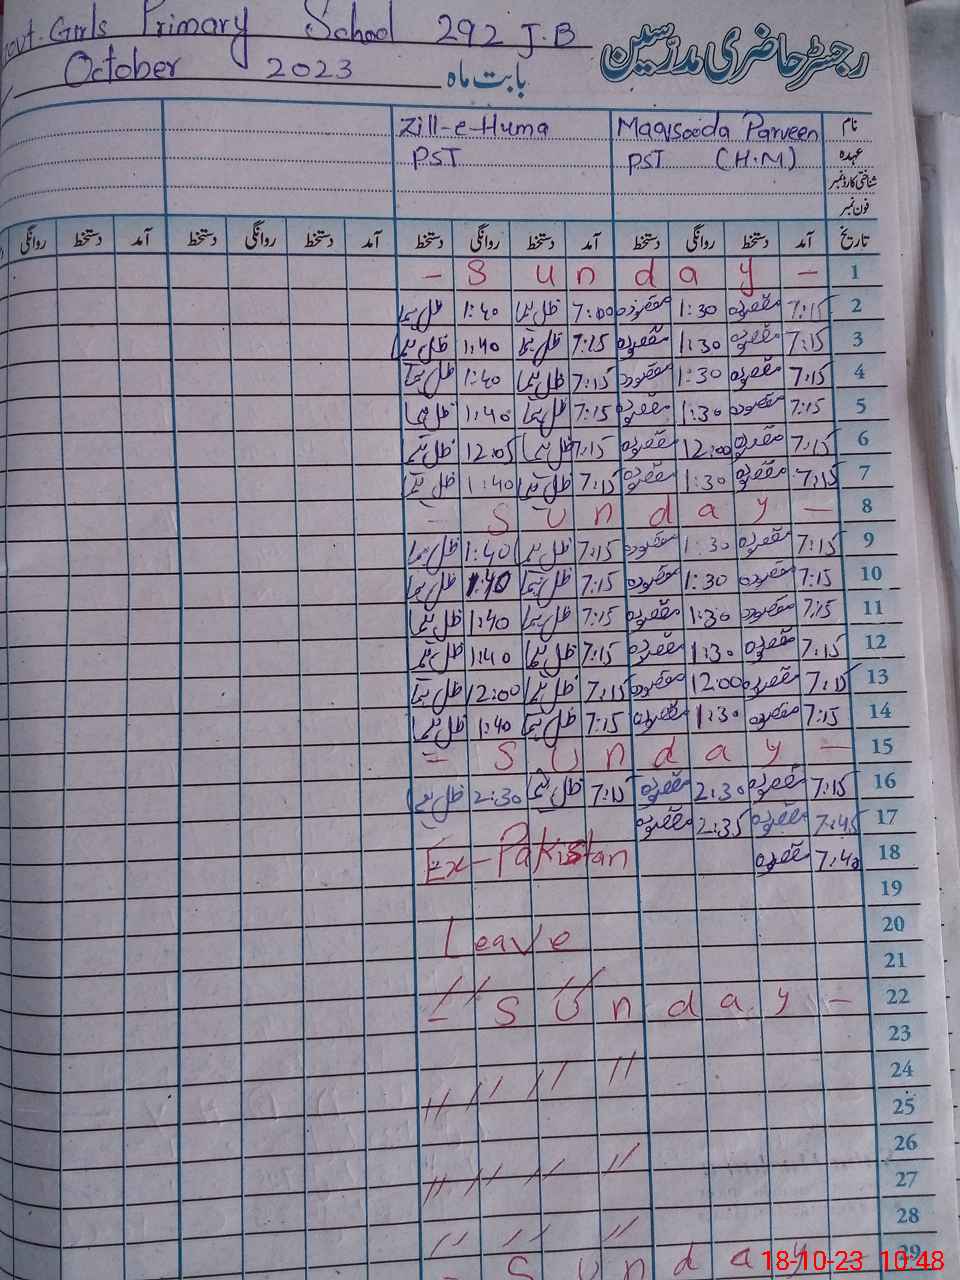 Govt. Girls Primary School 292 J.B
رجسٹر حاضری مدرسین
October 2023 بابت ماہ
نام Maqsooda Parveen Zill-e-Huma
عہدہ PST (H.M) PST
شناختی کارڈ نمبر
فون نمبر
تاریخ آمد دستخط روانگی دستخط آمد دستخط روانگی دستخط آمد دستخط روانگی دستخط آمد دستخط روانگی
1 - Sunday -
2 7:15 مقصودہ 1:30 مقصودہ 7:00 ظل ہما 1:40 ظل ہما
3 7:15 مقصودہ 1:30 مقصودہ 7:15 ظل ہما 1:40 ظل ہما
4 7:15 مقصودہ 1:30 مقصودہ 7:15 ظل ہما 1:40 ظل ہما
5 7:15 مقصودہ 1:30 مقصودہ 7:15 ظل ہما 1:40 ظل ہما
6 7:15 مقصودہ 12:00 مقصودہ 7:15 ظل ہما 12:05 ظل ہما
7 7:15 مقصودہ 1:30 مقصودہ 7:15 ظل ہما 1:40 ظل ہما
8 - Sunday -
9 7:15 مقصودہ 1:30 مقصودہ 7:15 ظل ہما 1:40 ظل ہما
10 7:15 مقصودہ 1:30 مقصودہ 7:15 ظل ہما 1:40 ظل ہما
11 7:15 مقصودہ 1:30 مقصودہ 7:15 ظل ہما 1:40 ظل ہما
12 7:15 مقصودہ 1:30 مقصودہ 7:15 ظل ہما 1:40 ظل ہما
13 7:15 مقصودہ 12:00 مقصودہ 7:15 ظل ہما 12:00 ظل ہما
14 7:15 مقصودہ 1:30 مقصودہ 7:15 ظل ہما 1:40 ظل ہما
15 = Sunday -
16 7:15 مقصودہ 2:30 مقصودہ 7:15 ظل ہما 2:30 ظل ہما
17 7:45 مقصودہ 2:35 مقصودہ
18 7:40 مقصودہ Ex-Pakistan
19
20 Leave
21 // //
22 - Sunday -
23
24 // // // //
25
26
27 // // // //
28 // // //
29 - Sunday
18-10-23 10:48